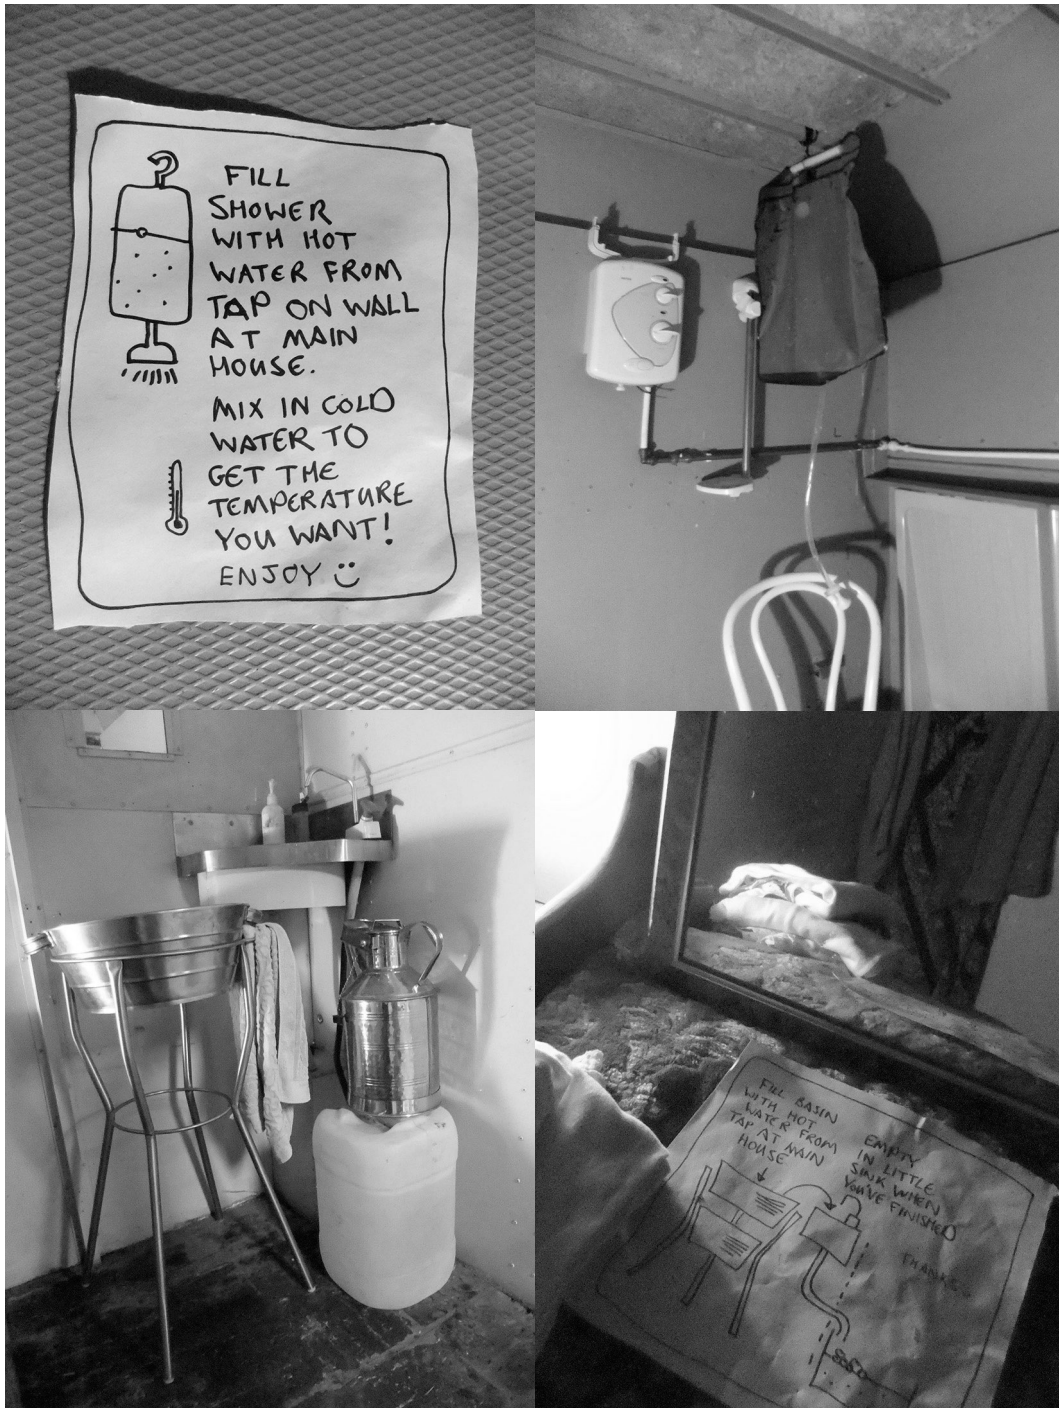 FILL
SHOWER
WITH HOT
WATER FROM
TAP ON WALL
AT MAIN
HOUSE.
MIX IN COLD
WATER TO
GET THE
TEMPERATURE
YOU WANT!
ENJOY
FILL BASIN
WITH HOT
WATER FROM
TAP AT MAIN
HOUSE
EMPTY
IN LITTLE
SINK WHEN
YOU'VE FINISHED
THANKS